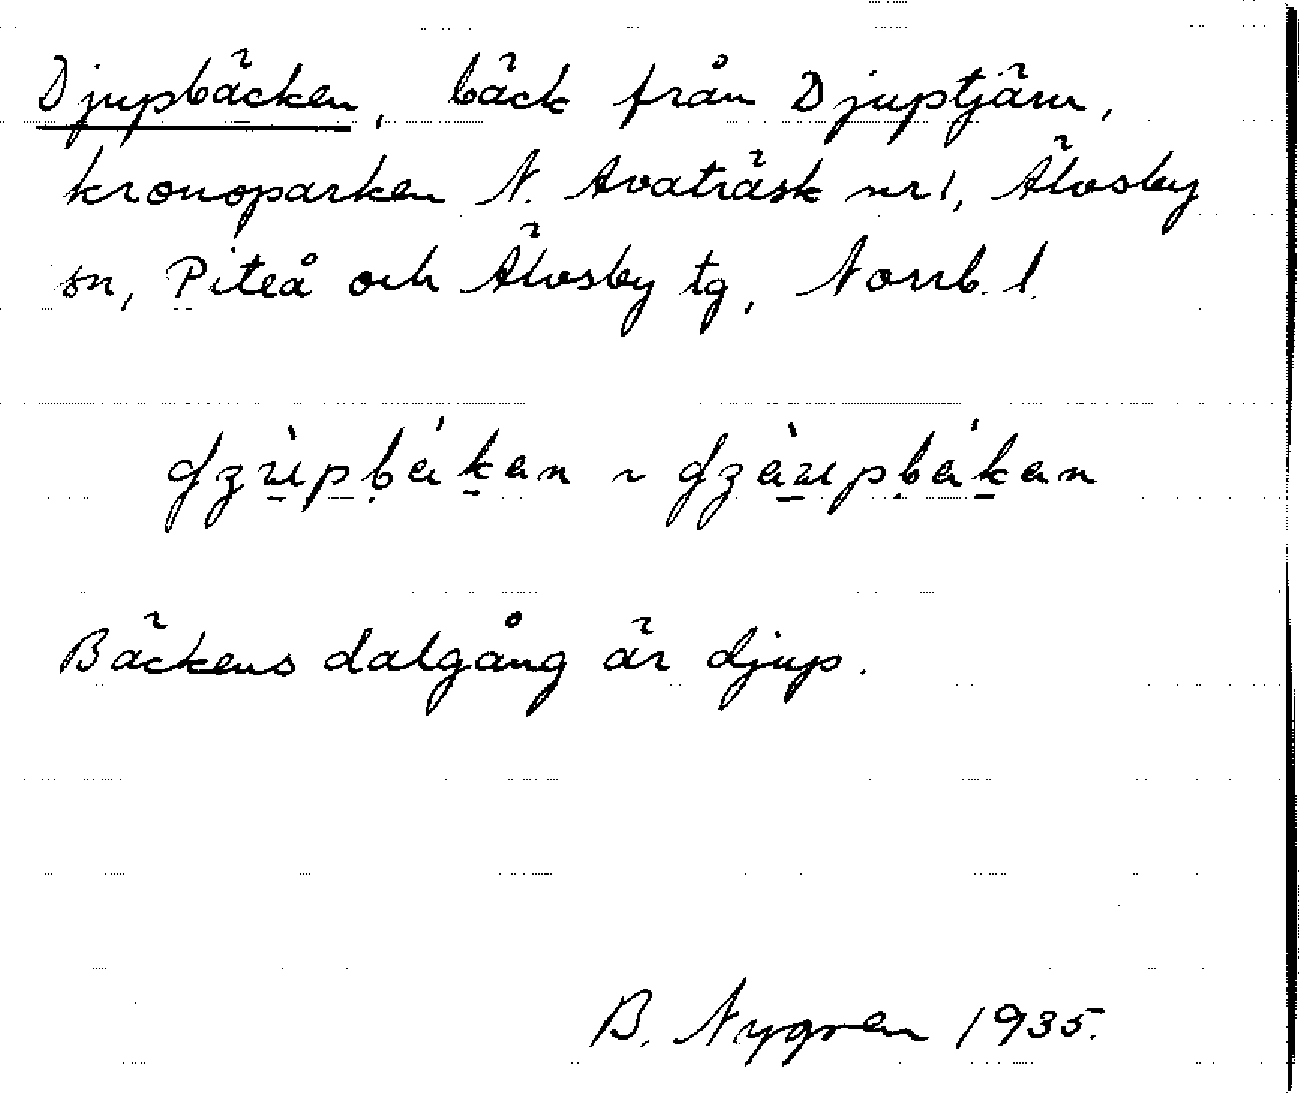 Djupbäcken, bäck från Djuptjärn,
kronoparken N. Avaträsk nr 1, Älvsby
sn, Piteå och Älvsby tg, Norrb. l.
Bäckens dalgång är djup.
B. Nygren 1935.